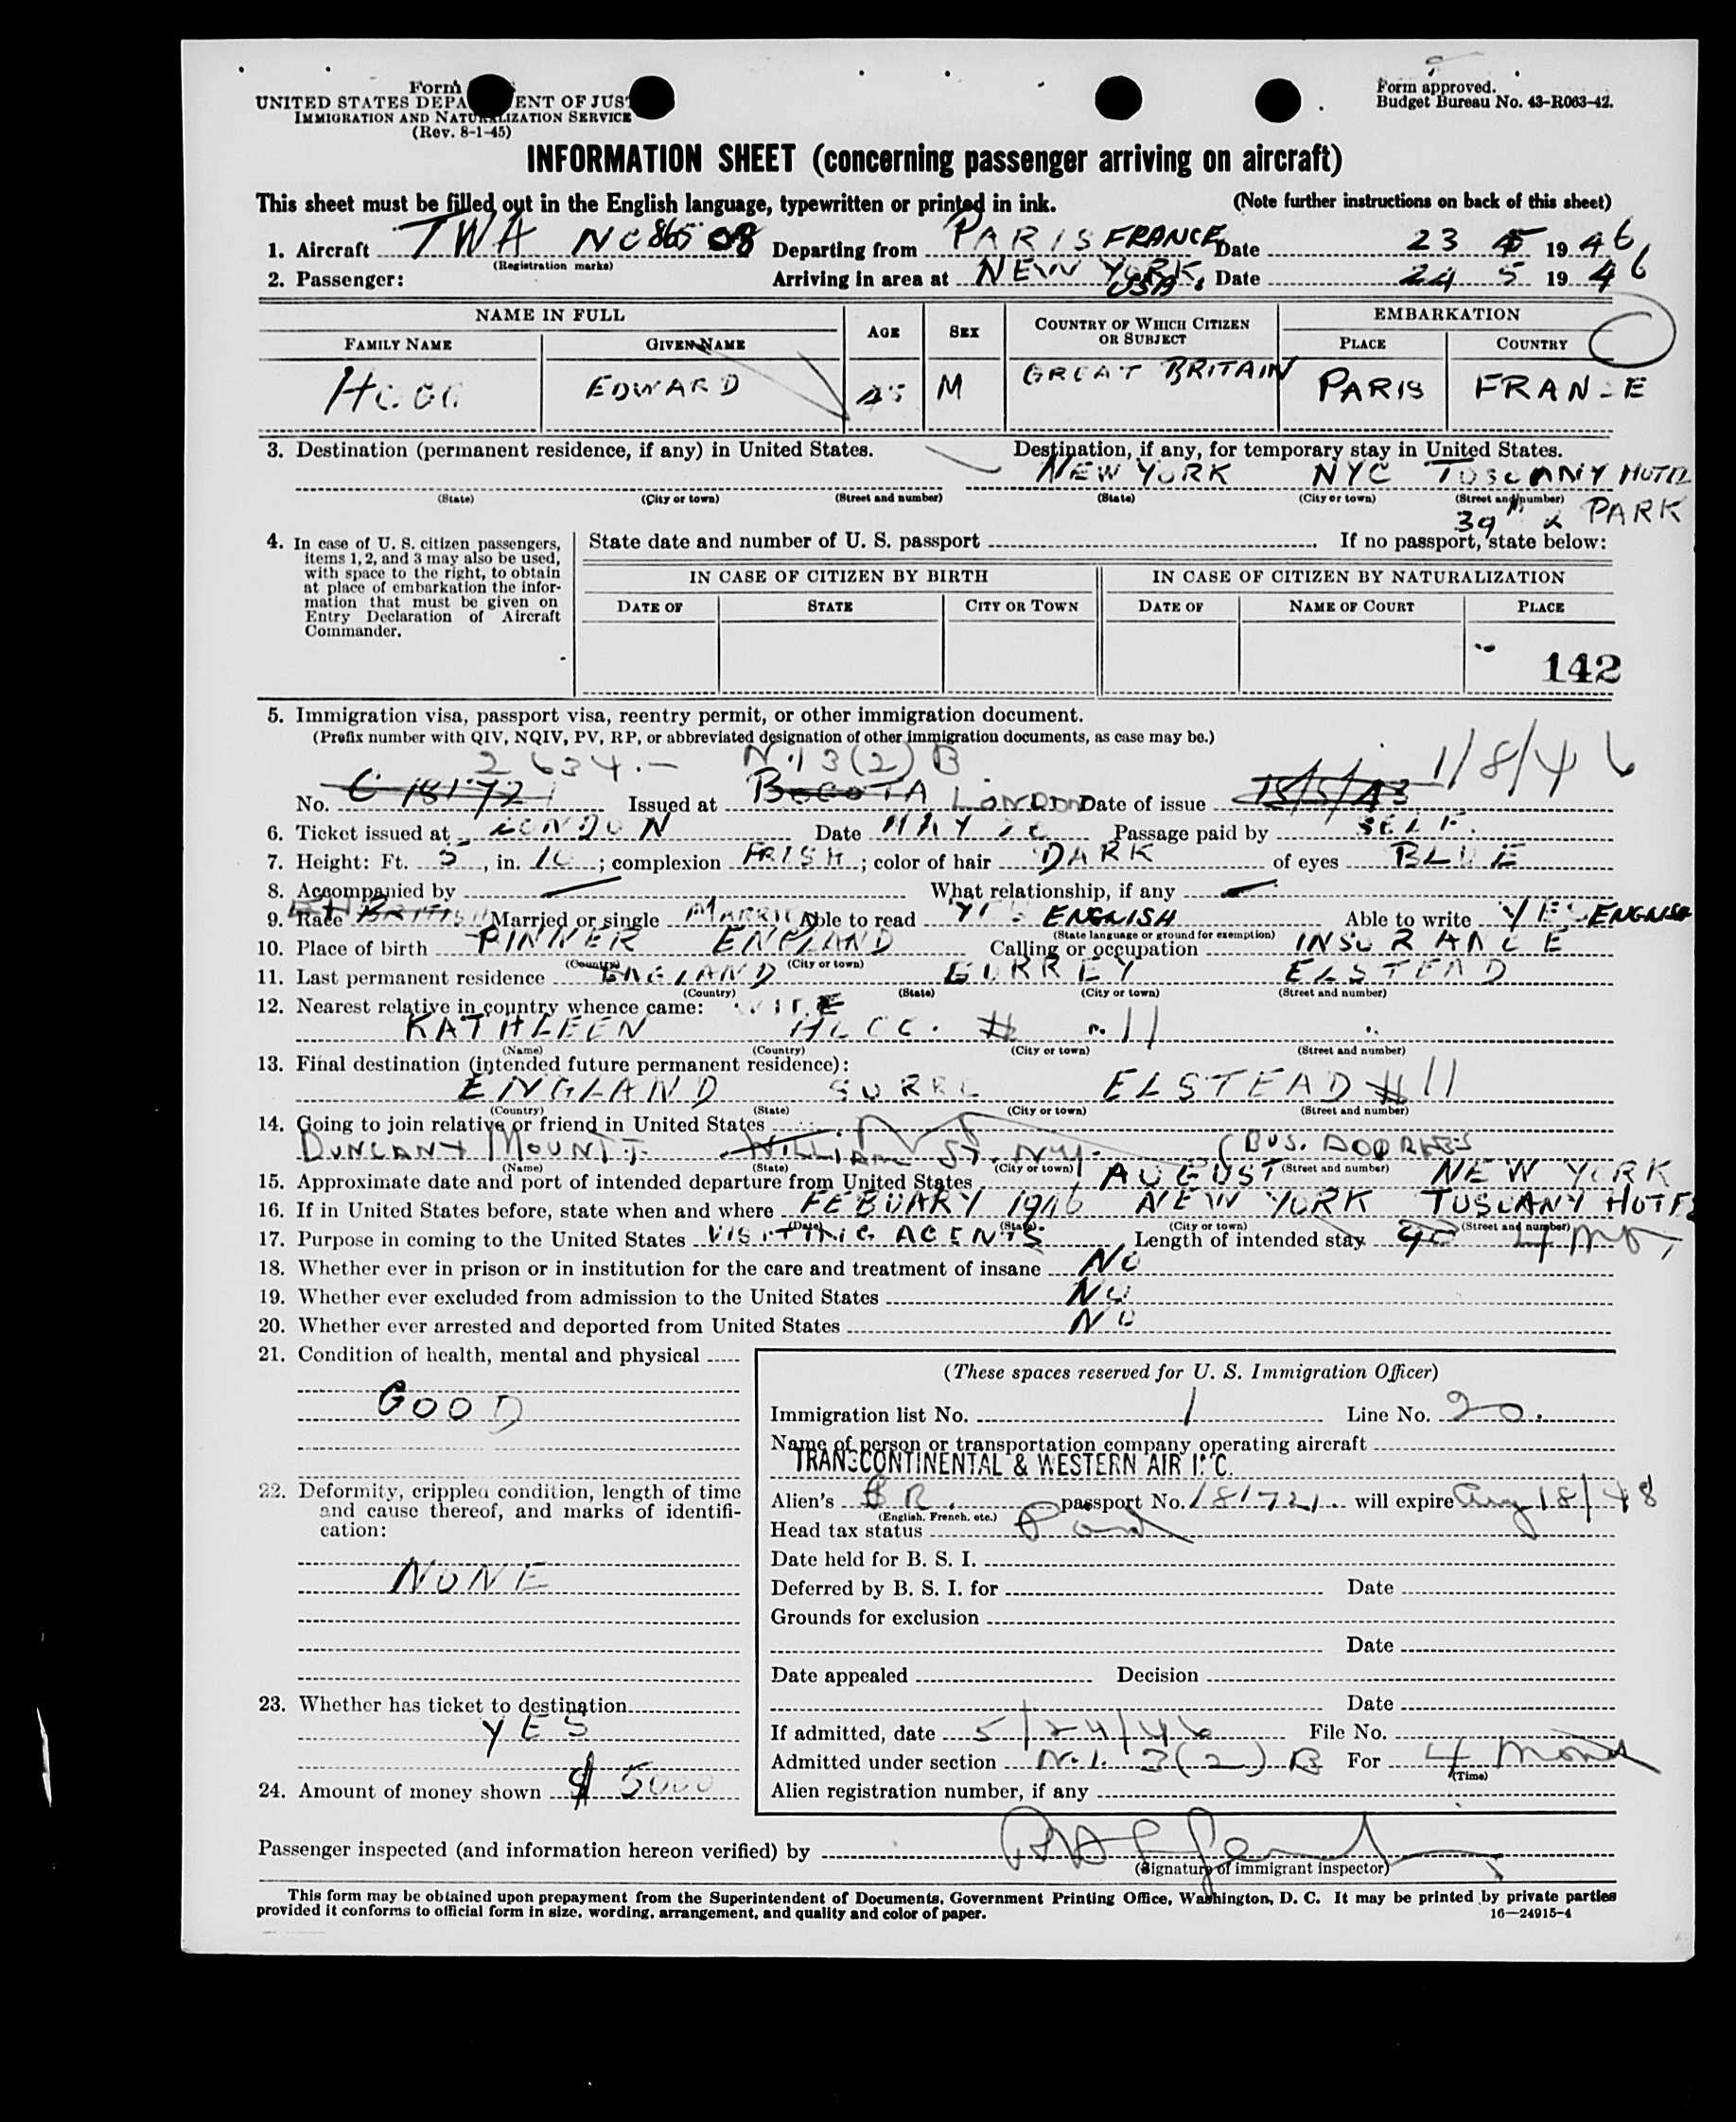 Form
UNITED STATES DEPA ENT OF JUS
IMMIGRATION AND NATURALIZATION SERVICE
(Rev. 8-1-45)
Form approved.
Budget Bureau No. 43-R063-42.
INFORMATION SHEET (concerning passenger arriving on aircraft)
This sheet must be filled out in the English language, typewritten or printed in ink. (Note further instructions on back of this sheet)
1. Aircraft TWA NC 86508 Departing from PARIS FRANCE Date 23 5 1946
(Registration marks)
2. Passenger: Arriving in area at NEW YORK USA. Date 24 5 1946
NAME IN FULL AGE SEX COUNTRY OF WHICH CITIZEN OR SUBJECT EMBARKATION
FAMILY NAME GIVEN NAME PLACE COUNTRY
HOGG EDWARD 45 M GREAT BRITAIN PARIS FRANCE
3. Destination (permanent residence, if any) in United States. Destination, if any, for temporary stay in United States.
NEW YORK NYC TUSCANY HOTEL
(State) (City or town) (Street and number) (State) (City or town) (Street and number)
39th & PARK
4. In case of U. S. citizen passengers, items 1, 2, and 3 may also be used, with space to the right, to obtain at place of embarkation the information that must be given on Entry Declaration of Aircraft Commander.
State date and number of U. S. passport If no passport, state below:
IN CASE OF CITIZEN BY BIRTH IN CASE OF CITIZEN BY NATURALIZATION
DATE OF STATE CITY OR TOWN DATE OF NAME OF COURT PLACE
142
5. Immigration visa, passport visa, reentry permit, or other immigration document.
(Prefix number with QIV, NQIV, PV, RP, or abbreviated designation of other immigration documents, as case may be.)
2634.- N.I 3(2) B 1/8/46
No. C 181721 Issued at BOGOTA LONDON Date of issue
6. Ticket issued at LONDON Date MAY Passage paid by SELF.
7. Height: Ft. 5, in. 10; complexion FRISH; color of hair DARK of eyes BLUE
8. Accompanied by What relationship, if any
9. Race BRITISH Married or single MARRIED Able to read YES ENGLISH Able to write YES ENGLISH
(State language or ground for exemption)
10. Place of birth PINNER ENGLAND Calling or occupation INSURANCE
(Country) (City or town)
11. Last permanent residence ENGLAND SURREY ELSTEAD
(Country) (State) (City or town) (Street and number)
12. Nearest relative in country whence came: WIFE
KATHLEEN HOGG. # 11
(Name) (Country) (City or town) (Street and number)
13. Final destination (intended future permanent residence):
ENGLAND SURREY ELSTEAD # 11
(Country) (State) (City or town) (Street and number)
14. Going to join relative or friend in United States
DUNCAN & MOUNT WILLIAM ST. NY. (BUS. ADDRESS
(Name) (State) (City or town) (Street and number)
15. Approximate date and port of intended departure from United States AUGUST NEW YORK
16. If in United States before, state when and where FEBUARY 1946 NEW YORK TUSCANY HOTEL
(Date) (State) (City or town) (Street and number)
17. Purpose in coming to the United States VISITING AGENTS Length of intended stay 4 MOS
18. Whether ever in prison or in institution for the care and treatment of insane NO
19. Whether ever excluded from admission to the United States NO
20. Whether ever arrested and deported from United States NO
21. Condition of health, mental and physical
GOOD
22. Deformity, crippled condition, length of time and cause thereof, and marks of identification:
NONE
23. Whether has ticket to destination
YES
24. Amount of money shown $ 5000
(These spaces reserved for U. S. Immigration Officer)
Immigration list No. 1 Line No. 20.
Name of person or transportation company operating aircraft
TRANSCONTINENTAL & WESTERN AIR INC.
Alien's BR. passport No. 181721. will expire Aug 18/48
(English, French, etc.)
Head tax status Paid
Date held for B. S. I.
Deferred by B. S. I. for Date
Grounds for exclusion
Date
Date appealed Decision
Date
If admitted, date 5/24/46 File No.
Admitted under section N.I. 3(2) B For 4 Months
(Time)
Alien registration number, if any
Passenger inspected (and information hereon verified) by
(Signature of immigrant inspector)
This form may be obtained upon prepayment from the Superintendent of Documents, Government Printing Office, Washington, D. C. It may be printed by private parties
provided it conforms to official form in size, wording, arrangement, and quality and color of paper. 16—24915-4